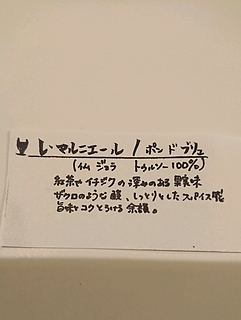 レ・マルニエール / ポン ド ブリュ
(仏 ジュラ トゥルソー 100%)
紅茶やイチジクの深みのある果実味
ザクロのような酸、しっとりとしたスパイス感
旨味とコクとろける余韻。